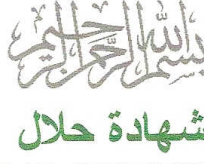 بسم الله الرحمن الرحيم
شهادة حلال